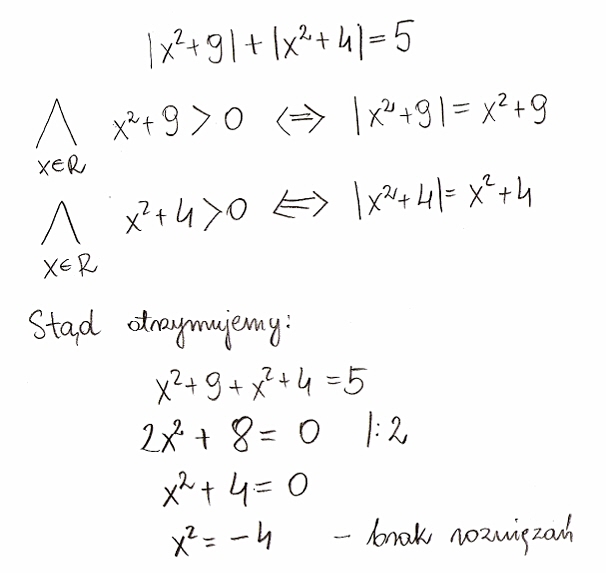 |x²+9|+|x²+4|=5
⋀ x²+9>0 ⟺ |x²+9|=x²+9
x∈R
⋀ x²+4>0 ⟺ |x²+4|=x²+4
x∈R
Stąd otrzymujemy:
x²+9+x²+4=5
2x²+8=0 |:2
x²+4=0
x²=-4 - brak rozwiązań